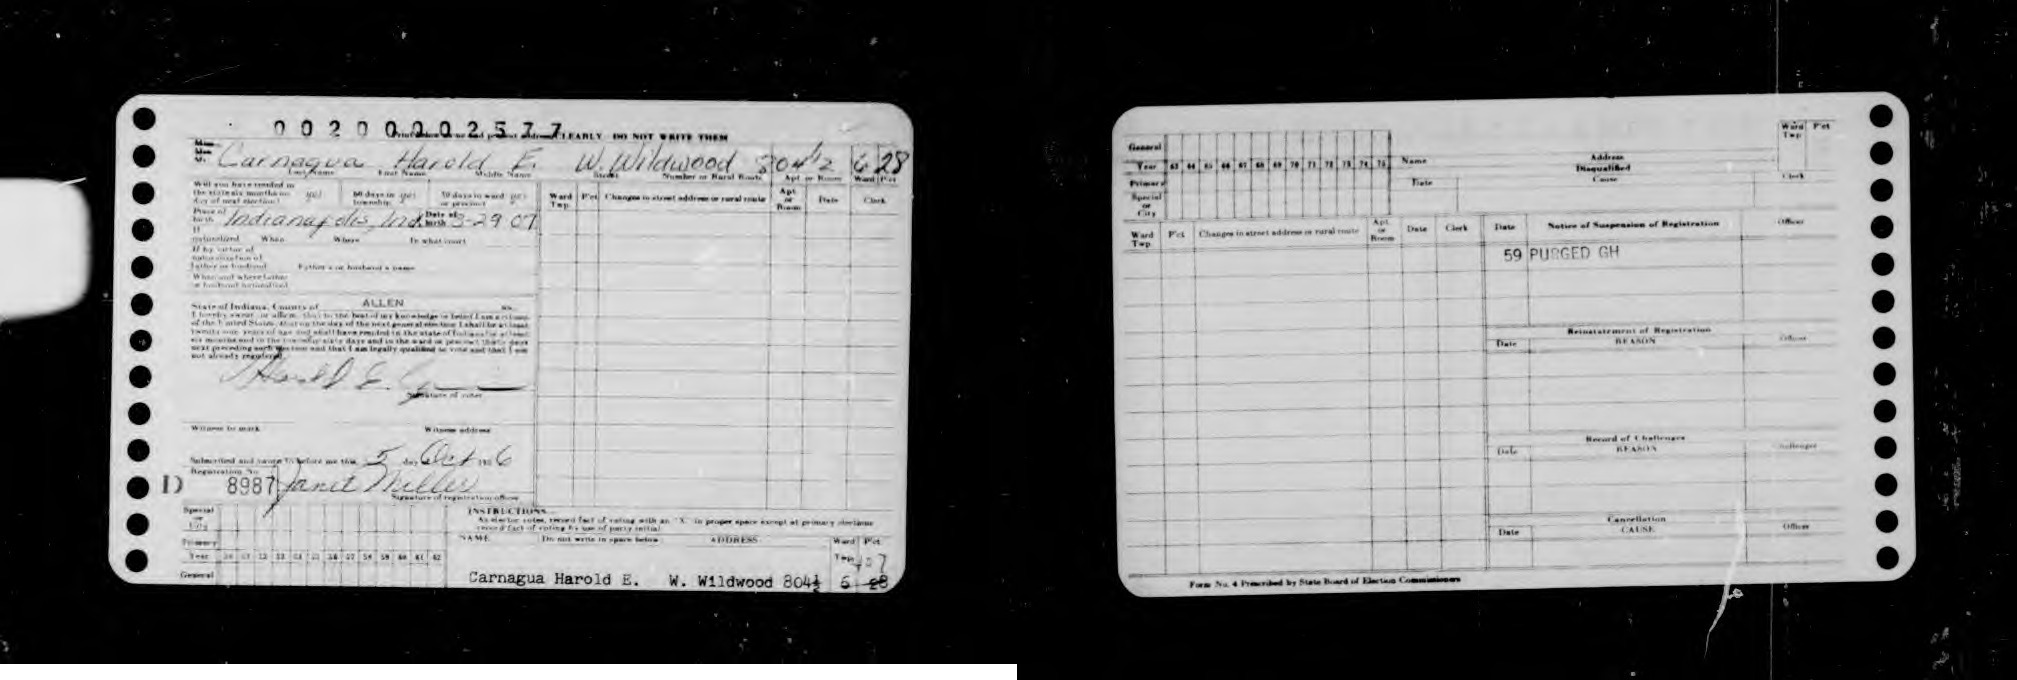 0 0 2 0 0 0 0 2 5 7 7
CLEARLY DO NOT WRITE THEM
Carnagua Harold E. W. Wildwood 804 1/2 6 28
Last Name First Name Middle Name Street Number or Rural Route Apt or Room Ward Pct
Will you have resided in
the state six months on yes 60 days in yes 30 days in ward yes
day of next election? township or precinct
Place of birth Indianapolis, Ind. Date of birth 3-29 07
If
naturalized When Where In what court
If by virtue of
naturalization of
father or husband Father's or husband's name
When and where father
or husband naturalized
State of Indiana, County of ALLEN ss.
I hereby swear or affirm, that to the best of my knowledge or belief I am a citizen
of the United States, that on the day of the next general election I shall be at least
twenty-one years of age and shall have resided in the state of Indiana for at least
six months and in the township sixty days and in the ward or precinct thirty days
next preceding such election and that I am legally qualified to vote and that I am
not already registered.
Harold E.
Signature of voter
Witness to mark Witness address
Subscribed and sworn to before me this 5 day Oct 195 6
Registration No.
D 8987 Janet Miller
Signature of registration officer
Special
or
City
Primary
Year 50 51 52 53 54 55 56 57 58 59 60 61 62
General
Ward Twp. Pct Changes in street address or rural route Apt. or Room Date Clerk
INSTRUCTIONS
As elector votes, record fact of voting with an "X" in proper space except at primary elections
record fact of voting by use of party initial.
NAME Do not write in space below ADDRESS Ward Pct
Twp. 407
Carnagua Harold E. W. Wildwood 804½ 6 28
General
Year 63 64 65 66 67 68 69 70 71 72 73 74 75
Primary
Special
or
City
Name Address Ward Twp. Pct
Disqualified
Date Cause Clerk
Ward Twp. Pct Changes in street address or rural route Apt. or Room Date Clerk
Date Notice of Suspension of Registration Officer
59 PURGED GH
Reinstatement of Registration
Date REASON Officer
Record of Challenges
Date REASON Challenger
Cancellation
Date CAUSE Officer
Form No. 4 Prescribed by State Board of Election Commissioners